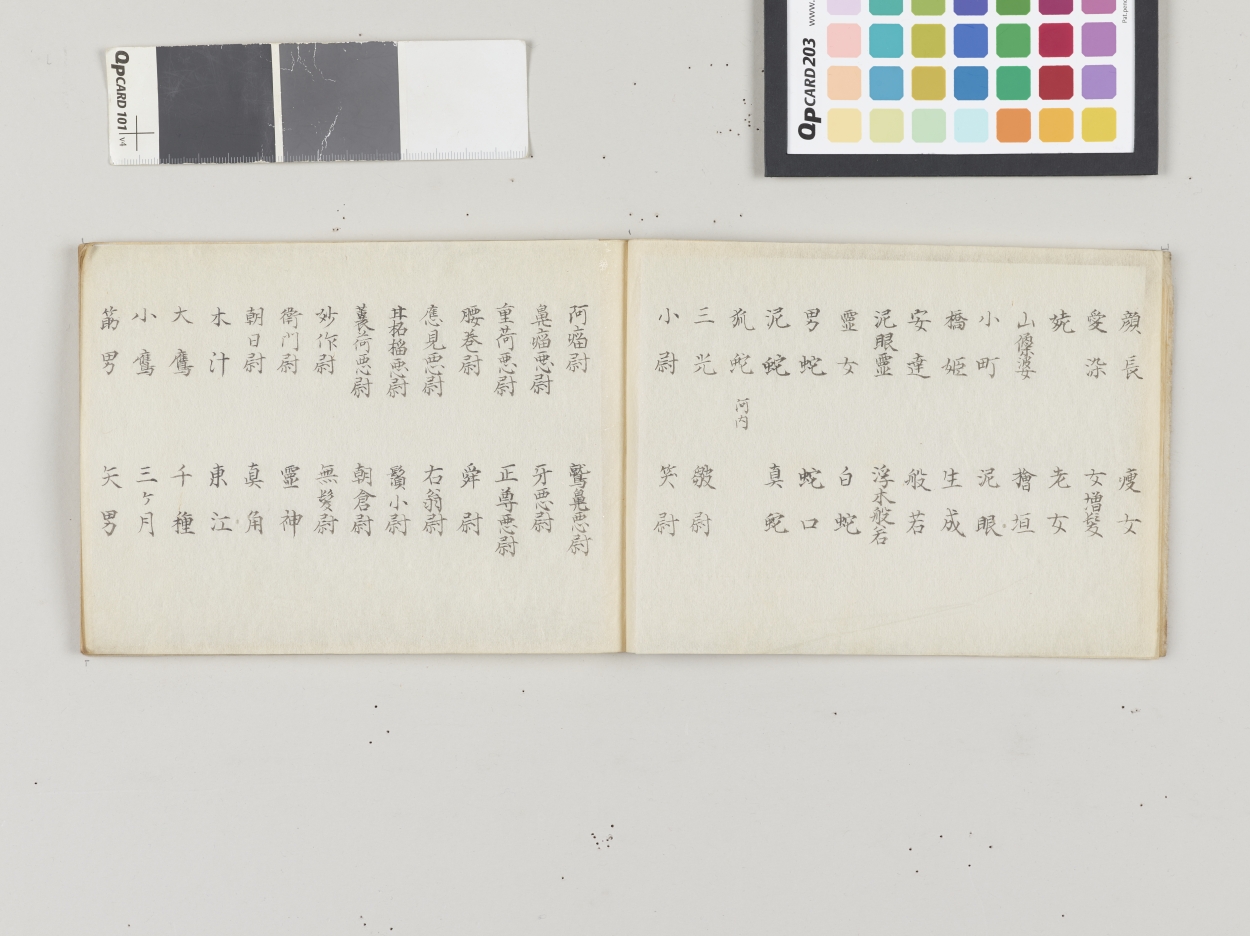 QpCARD 101 v4
QpCARD 203
www.
Pat.pend
顔長
愛染
姥
山傺婆
小町
橋姫
安達
泥眼靈
靈女
男蛇
泥蛇
狐蛇 河内
三光
小尉
痩女
女増髪
老女
檜垣
泥眼
生成
般若
浮木般若
白蛇
蛇口
真蛇
皺尉
笑尉
阿瘤尉
鼻瘤悪尉
重荷悪尉
腰巻尉
應見悪尉
茗荷悪尉
妙作尉
衛門尉
朝日尉
木汁
大鷹
小鷹
筋男
鷲鼻悪尉
牙悪尉
正尊悪尉
舜尉
右翁尉
鬚小尉
朝倉尉
無髪尉
靈神
真角
東江
千種
三ヶ月
矢男